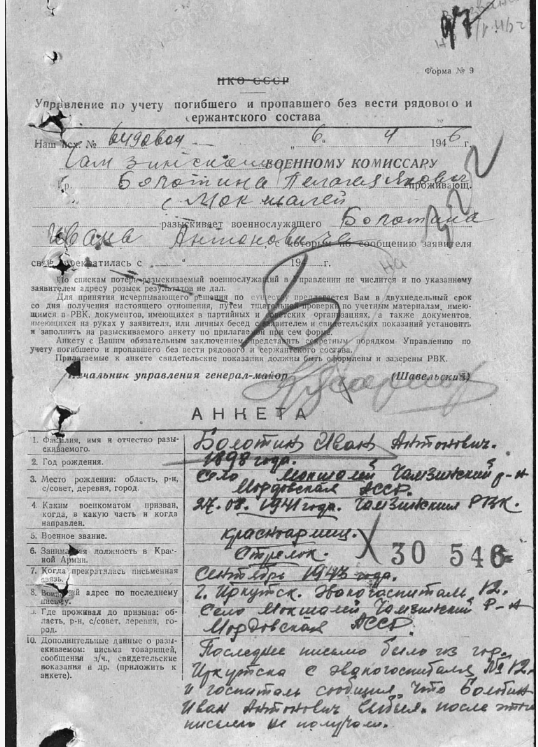 Форма № 9
НКО СССР
Управление по учету погибшего и пропавшего без вести рядового и
сержантского состава
Наш исх. № 194 6 г.
Чамзинскому ВОЕННОМУ КОМИССАРУ
гр. Болотина Пелагея проживающ.
с. Мокшалей
разыскивает военнослужащего Болотина
Ивана Антоновича который по сообщению заявителя
связь прекратилась с 194 г.
По спискам потерь разыскиваемый военнослужащий в Управлении не числится и по указанному
заявителем адресу розыск результатов не дал.
Для принятия исчерпывающего решения по существу предлагается Вам в двухнедельный срок
со дня получения настоящего отношения, путем тщательной проверки по учетным материалам, имею-
щимся в РВК, документов, имеющихся в партийных и организациях, а также документов,
имеющихся на руках у заявителя, или личных бесед с заявителем и свидетельских показаний установить
и заполнить на разыскиваемого анкету по прилагаемой при сем форме.
Анкету с Вашим обязательным заключением представить секретным порядком Управлению по
учету погибшего и пропавшего без вести рядового и сержантского состава.
Прилагаемые к анкете свидетельские показания должны быть оформлены и заверены РВК.
Начальник управления генерал-майор (Шавельский)
АНКЕТА
1. Фамилия, имя и отчество разы-
скиваемого. Болотин Иван Антонович.
2. Год рождения. 1898 года.
3. Место рождения: область, р-н,
с/совет, деревня, город. Село Мокшалей Чамзинский р-н
Мордовская АССР.
4. Каким военкоматом призван,
когда, в какую часть и когда
направлен. 27.08.1941 года. Чамзинским РВК.
5. Военное звание. красноармеец.
6. Занимаемая должность в Крас-
ной Армии. Стрелок.
30 546
7. Когда прекратилась письменная
связь. Сентябрь 1943 года.
8. адрес по последнему
письму. г. Иркутск. Эвакогоспиталь 12.
9. Где проживал до призыва: об-
ласть, р-н, с/совет, деревня, го-
род. Село Мокшалей Чамзинский р-н
Мордовская АССР.
10. Дополнительные данные о разы-
скиваемом: письма товарищей,
сообщения з/ч., свидетельские
показания и др. (приложить к
анкете).
Последнее письмо было из гор.
Иркутска с эвакогоспиталя № 12.
и госпиталь сообщил, что Болотин
Иван Антонович выбыл. после этого
письма не получали.